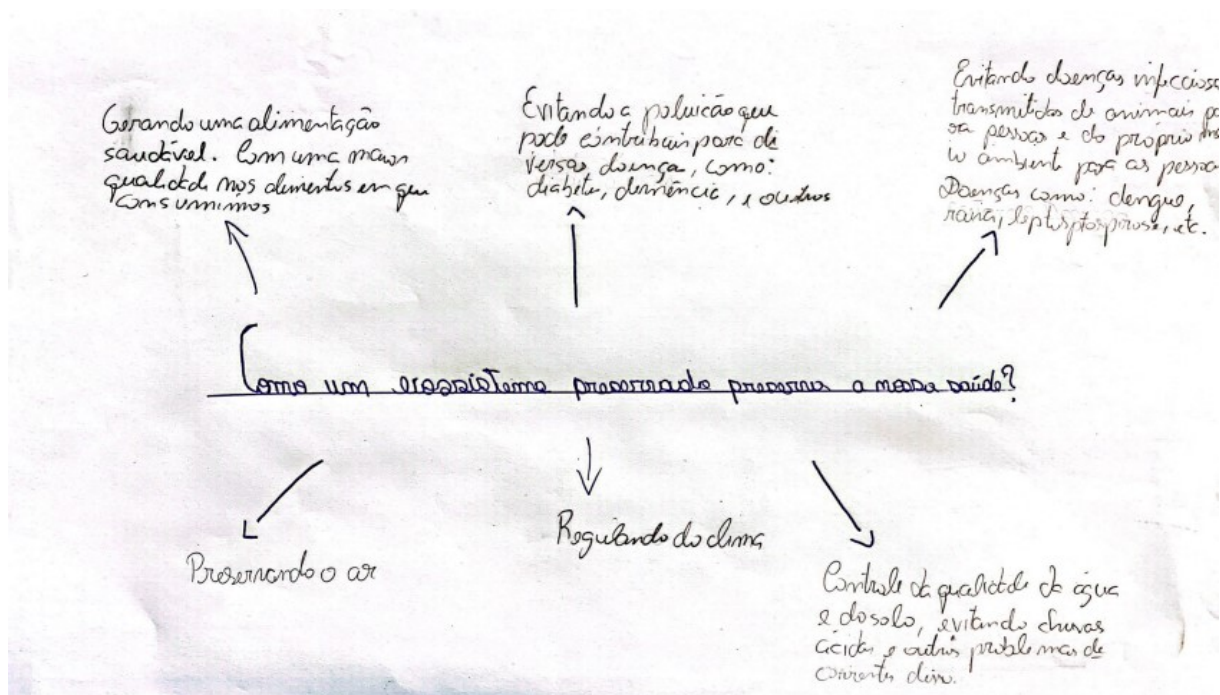 Gerando uma alimentação
saudável. Com uma maior
qualidade nos alimentos em que
consumimos
Evitando a poluição que
pode contribuir para di
versas doença, como:
diabete, demência, e outros
Evitando doenças infecciosa
transmitidas de animais pa
ra pessoas e do próprio mei
o ambient para as pessoa
Doenças como: dengue,
raiva, leptospirose, etc.
Como um ecossistema preservado preserva a nossa saúde?
Preservando o ar
Regulando do clima
Controle da qualidade da água
e do solo, evitando chuvas
ácidas e outros problemas de
correntes disso.